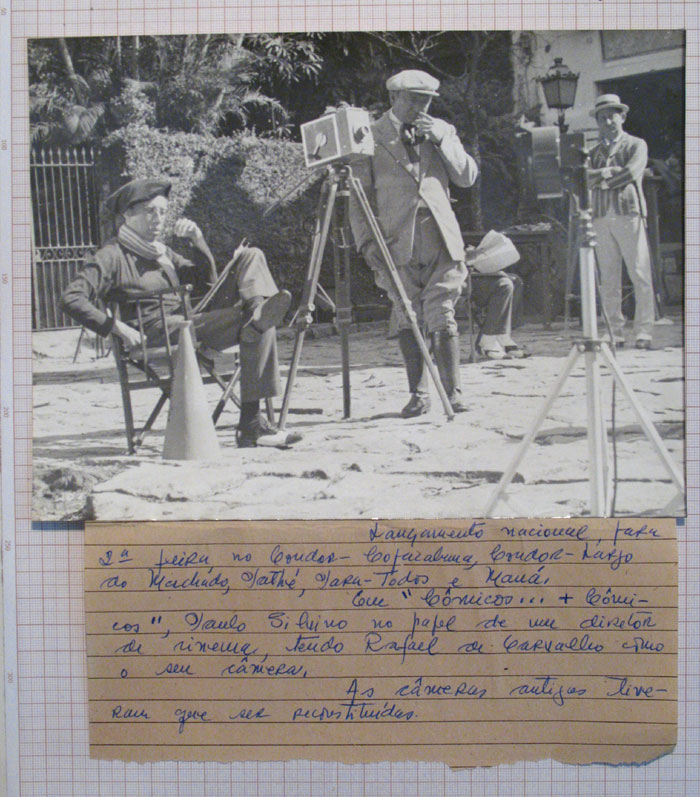 Lançamento nacional, para
2ª feira, no Condor-Copacabana, Condor-Largo
do Machado, Pathé, Para-Todos e Mauá.
Em "Cômicos... + Cômi-
cos", Paulo Silvino no papel de um diretor
de cinema, tendo Rafael de Carvalho como
o seu câmera.
As câmeras antigas tive-
ram que ser reconstituídas.